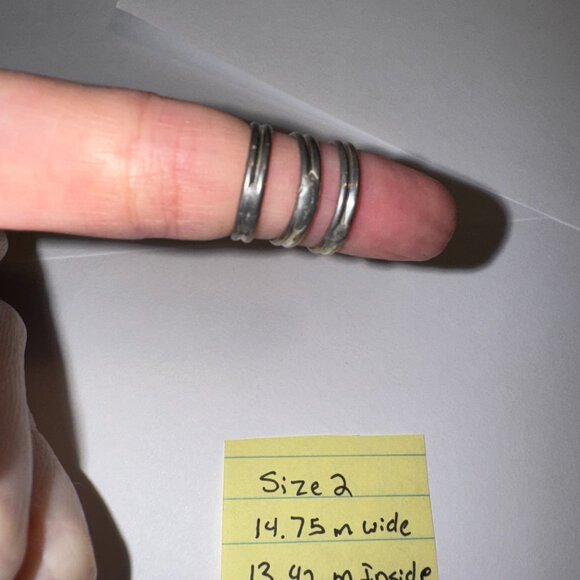 Size 2
14.75 m wide
13.42 m Inside